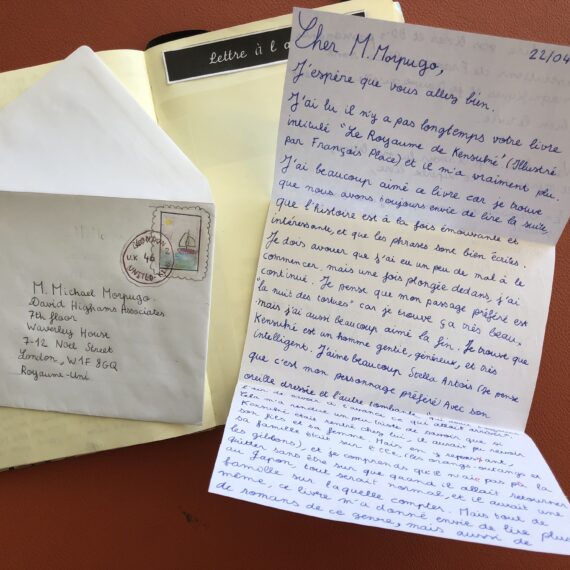 Lettre à l'a
Cher M. Morpugo,
22/04
J'espère que vous allez bien.
J'ai lu il n'y a pas longtemps votre livre
intitulé "Le Royaume de Kensuké" (Illustré
par François Place) et il m'a vraiment plu.
J'ai beaucoup aimé ce livre car je trouve
que nous avons toujours envie de lire la suite,
que l'histoire est à la fois émouvante et
intéressante, et que les phrases sont bien écrites.
Je dois avouer que j'ai eu un peu de mal à le
commencer, mais une fois plongée dedans, j'ai
continué. Je pense que mon passage préféré est
"la nuit des tortues" car je trouve ça très beau,
mais j'ai aussi beaucoup aimé la fin. Je trouve que
Kensuké est un homme gentil, généreux, et très
intelligent. J'aime beaucoup Stella Artois (je pense
que c'est mon personnage préféré) avec son
oreille dressée et l'autre tombante
Cela m'a rendue un peu triste de savoir que si
Kensuké était rentré chez lui, il aurait pu revoir
son fils et sa femme. Mais, en y repensant,
sa famille était sur l'île, (les orangs-outangs et
les gibbons), et je comprends qu'il n'aie pas pu la
quitter sans être sur que quand il allait retourner
au Japon, tout serait normal, et il aurait une
famille sur laquelle compter. Mais tout de
même, ce livre m'a donné envie de lire plus
de romans de ce genre, mais aussi de
LONDON
U.K 46
UNITED-K
M. Michael Morpugo
David Highams Associates
7th floor
Waverley House
7-12 Noël Street
London, W1F 8GQ
Royaume-Uni